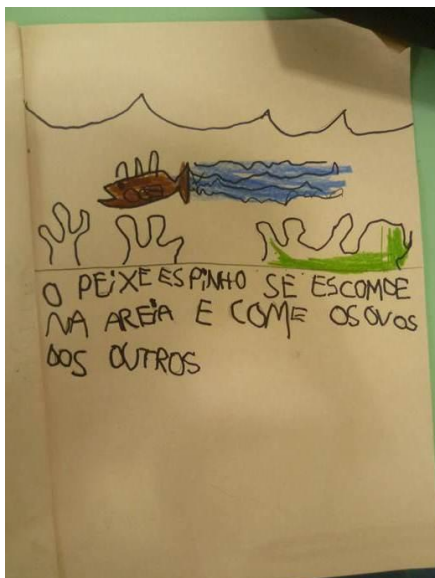 O PEIXE ESPINHO SE ESCOMDE
NA AREIA E COME OS OVOS
DOS OUTROS